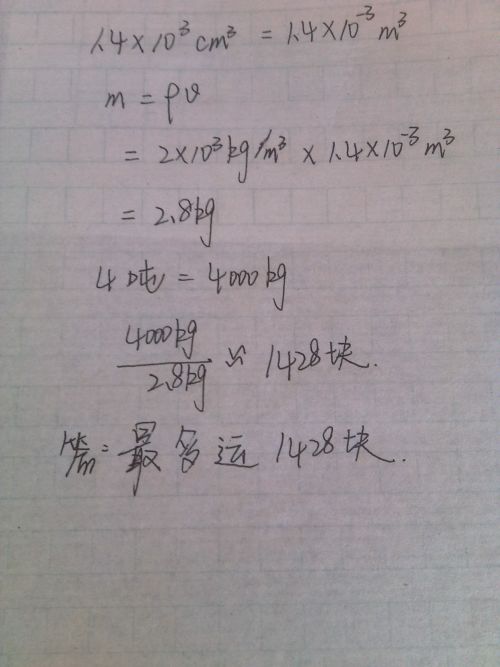 1.4×10³cm³ = 1.4×10⁻³m³
m = ρv
= 2×10³kg/m³ × 1.4×10⁻³m³
= 2.8kg
4吨 = 4000kg
4000kg/2.8kg ≈ 1428块.
答:最多运1428块.